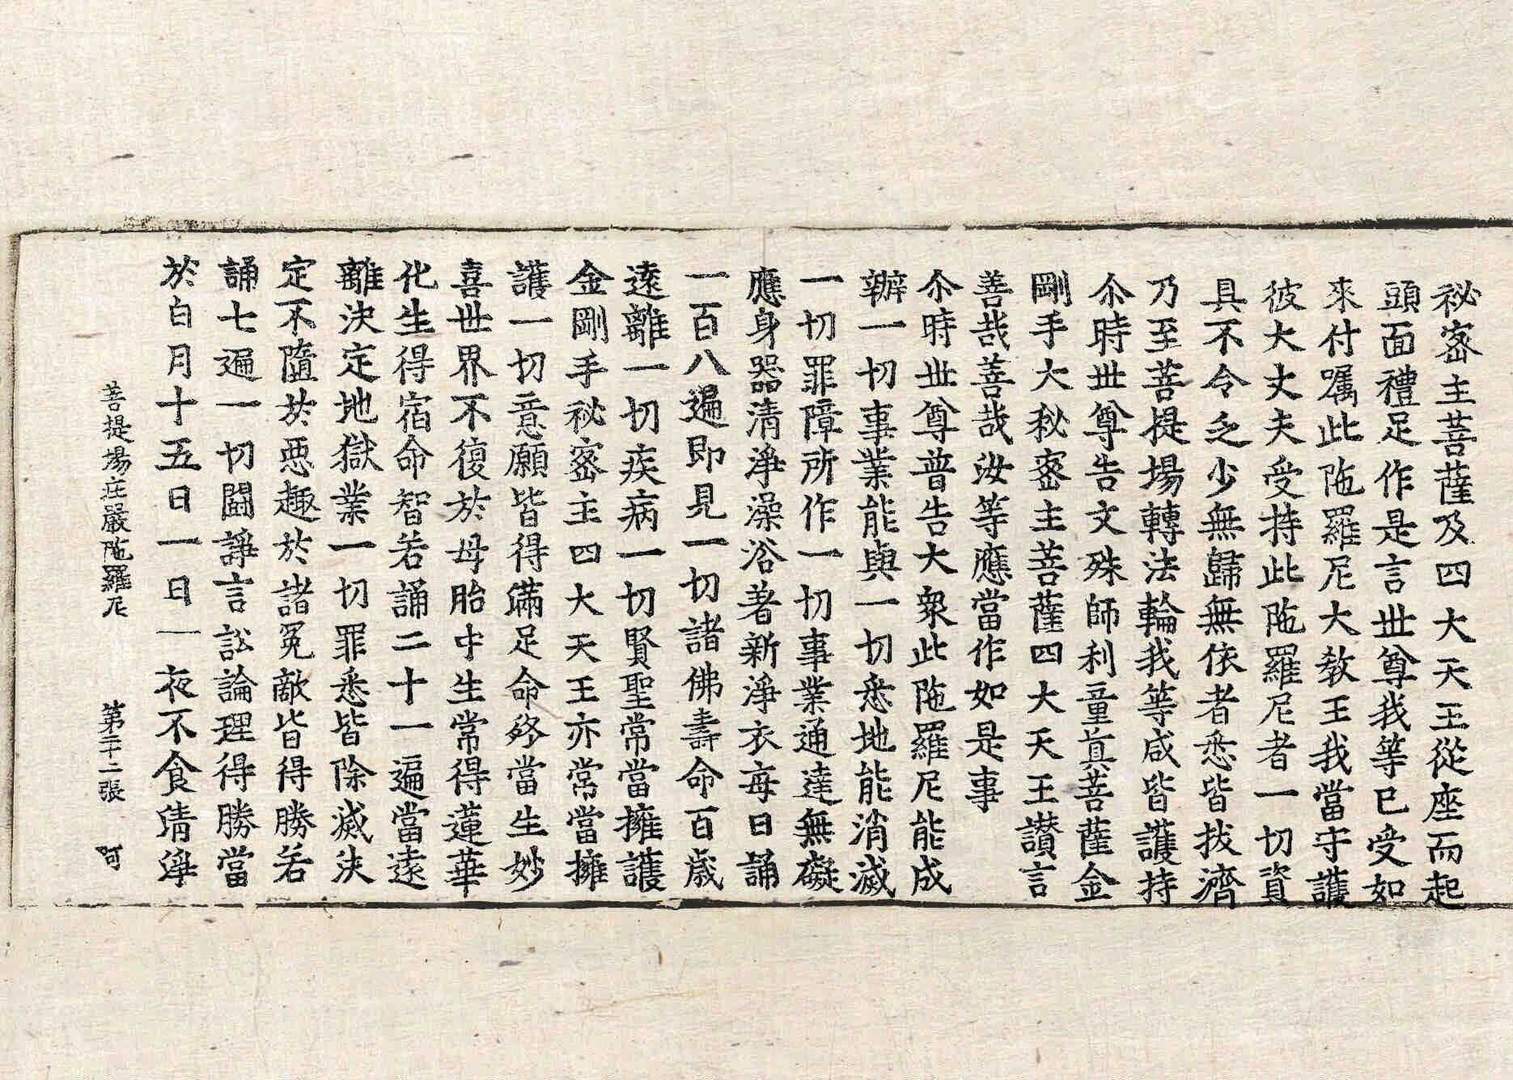 祕密主菩薩及四大天王從座而起
頭面禮足作是言世尊我等已受如
來付囑此陁羅尼大教王我當守護
彼大丈夫受持此陁羅尼者一切資
具不令乏少無歸無依者悉皆拔濟
乃至菩提場轉法輪我等咸皆護持
尒時世尊告文殊師利童真菩薩金
剛手大秘密主菩薩四大天王讃言
善哉善哉汝等應當作如是事
尒時世尊普告大衆此陁羅尼能成
辦一切事業能與一切悉地能消滅
一切罪障所作一切事業通達無礙
應身器清淨澡浴著新淨衣每日誦
一百八遍即見一切諸佛壽命百歲
遠離一切疾病一切賢聖常當擁護
金剛手秘密主四大天王亦常當擁
護一切意願皆得滿足命終當生妙
喜世界不復於母胎中生常得蓮華
化生得宿命智若誦二十一遍當遠
離決定地獄業一切罪悉皆除滅決
定不隨於惡趣於諸冤敵皆得勝若
誦七遍一切鬪諍言訟論理得勝當
於白月十五日一日一夜不食清淨
菩提場庄嚴陁羅尼 第二十二張 阿